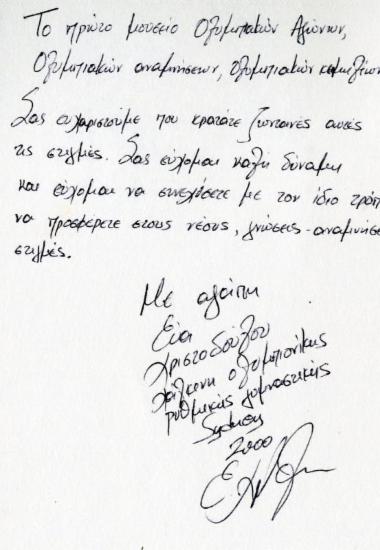 Το πρώτο μουσείο Ολυμπιακών Αγώνων,
Ολυμπιακών αναμνήσεων, Ολυμπιακών
Σας ευχαριστούμε που κρατάτε ζωντανές αυτές
τις στιγμές. Σας εύχομαι καλή δύναμη
και εύχομαι να συνεχίσετε με τον ίδιο τρόπο
να προσφέρετε στους νέους, γνώσεις - αναμνήσε
στιγμές.
Με αγάπη
Εύα
Χριστοδούλου
χάλκινη ολυμπιονίκης
ρυθμικής γυμναστικής
Σύδνεϋ
2000